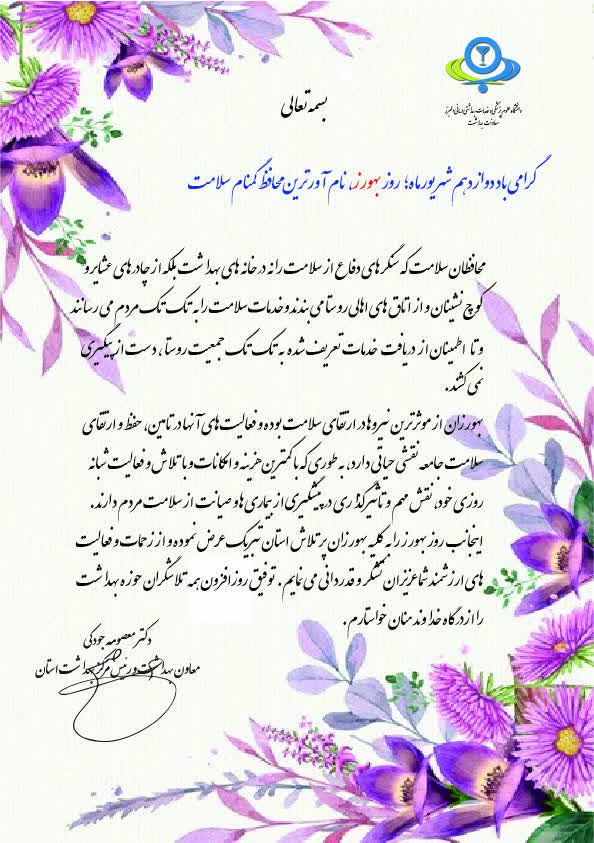 دانشگاه علوم پزشکی و خدمات بهداشتی درمانی البرز
معاونت بهداشت
بسمه تعالی
گرامی باد دوازدهم شهریور ماه؛ روز بهورز، نام آورترین محافظ گمنام سلامت
محافظان سلامت که سنگرهای دفاع از سلامت را نه در خانه های بهداشت بلکه از چادرهای عشایر و
کوچ نشینان و از اتاق های اهالی روستا می بندند و خدمات سلامت را به تک تک مردم می رسانند
و تا اطمینان از دریافت خدمات تعریف شده به تک تک جمعیت روستا، دست از پیگیری
نمی کشند.
بهورزان از موثرترین نیروها در ارتقای سلامت بوده و فعالیت های آنها در تامین، حفظ و ارتقای
سلامت جامعه نقشی حیاتی دارد، به طوری که با کمترین هزینه و امکانات و با تلاش و فعالیت شبانه
روزی خود، نقش مهم و تاثیرگذاری در پیشگیری از بیماری ها و صیانت از سلامت مردم دارند.
اینجانب روز بهورز را به کلیه بهورزان پرتلاش استان تبریک عرض نموده و از زحمات و فعالیت
های ارزشمند شما عزیزان تشکر و قدردانی می نمایم. توفیق روز افزون همه تلاشگران حوزه بهداشت
را از درگاه خداوند منان خواستارم.
دکتر معصومه جودکی
معاون بهداشت و رئیس مرکز بهداشت استان